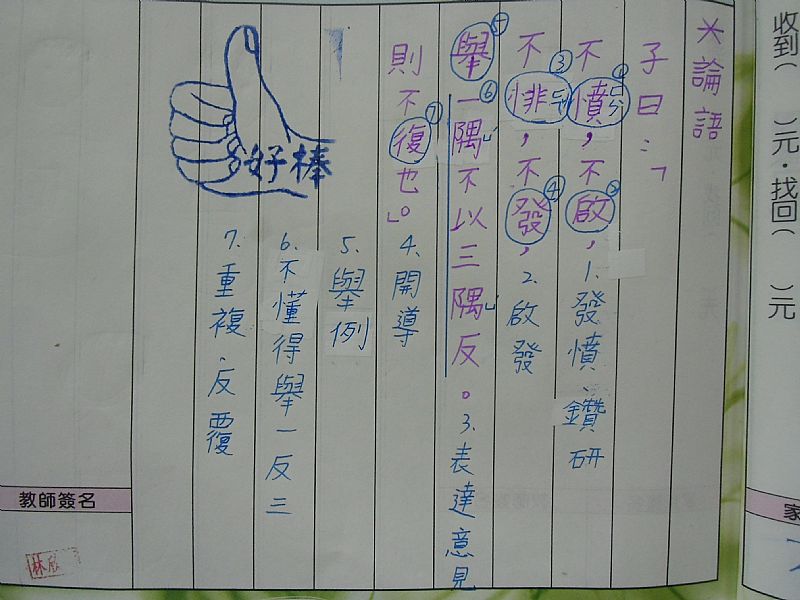 收到(　　)元．找回(　　)元
＊論語
子曰：「
不憤，不啟，1.發憤、鑽研
不悱，不發，2.啟發
舉一隅不以三隅反。3.表達意見
則不復也」。4.開導
5.舉例
6.不懂得舉一反三
7.重複．反覆
好棒
教師簽名